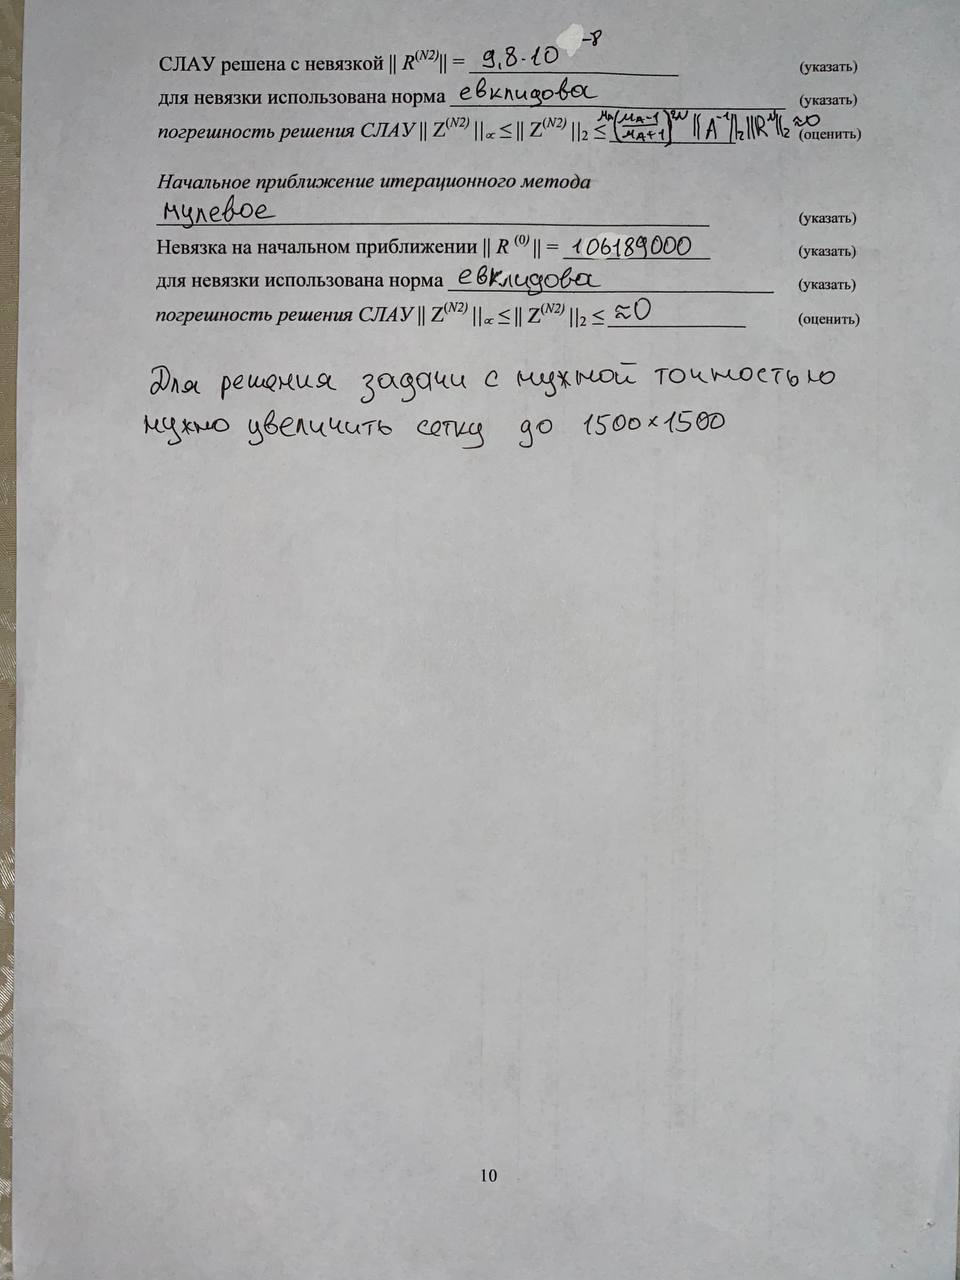 СЛАУ решена с невязкой || R^(N2) || = 9,8·10^-8 (указать)
для невязки использована норма евклидова (указать)
погрешность решения СЛАУ || Z^(N2) ||∞ ≤ || Z^(N2) ||2 ≤ μA((μA-1)/(μA+1))^2N ||A^-1||2 ||R^||2 ≈0 (оценить)
Начальное приближение итерационного метода
нулевое (указать)
Невязка на начальном приближении || R^(0) || = 106189000 (указать)
для невязки использована норма евклидова (указать)
погрешность решения СЛАУ || Z^(N2) ||∞ ≤ || Z^(N2) ||2 ≤ ≈0 (оценить)
Для решения задачи с нужной точностью
нужно увеличить сетку до 1500×1500
10